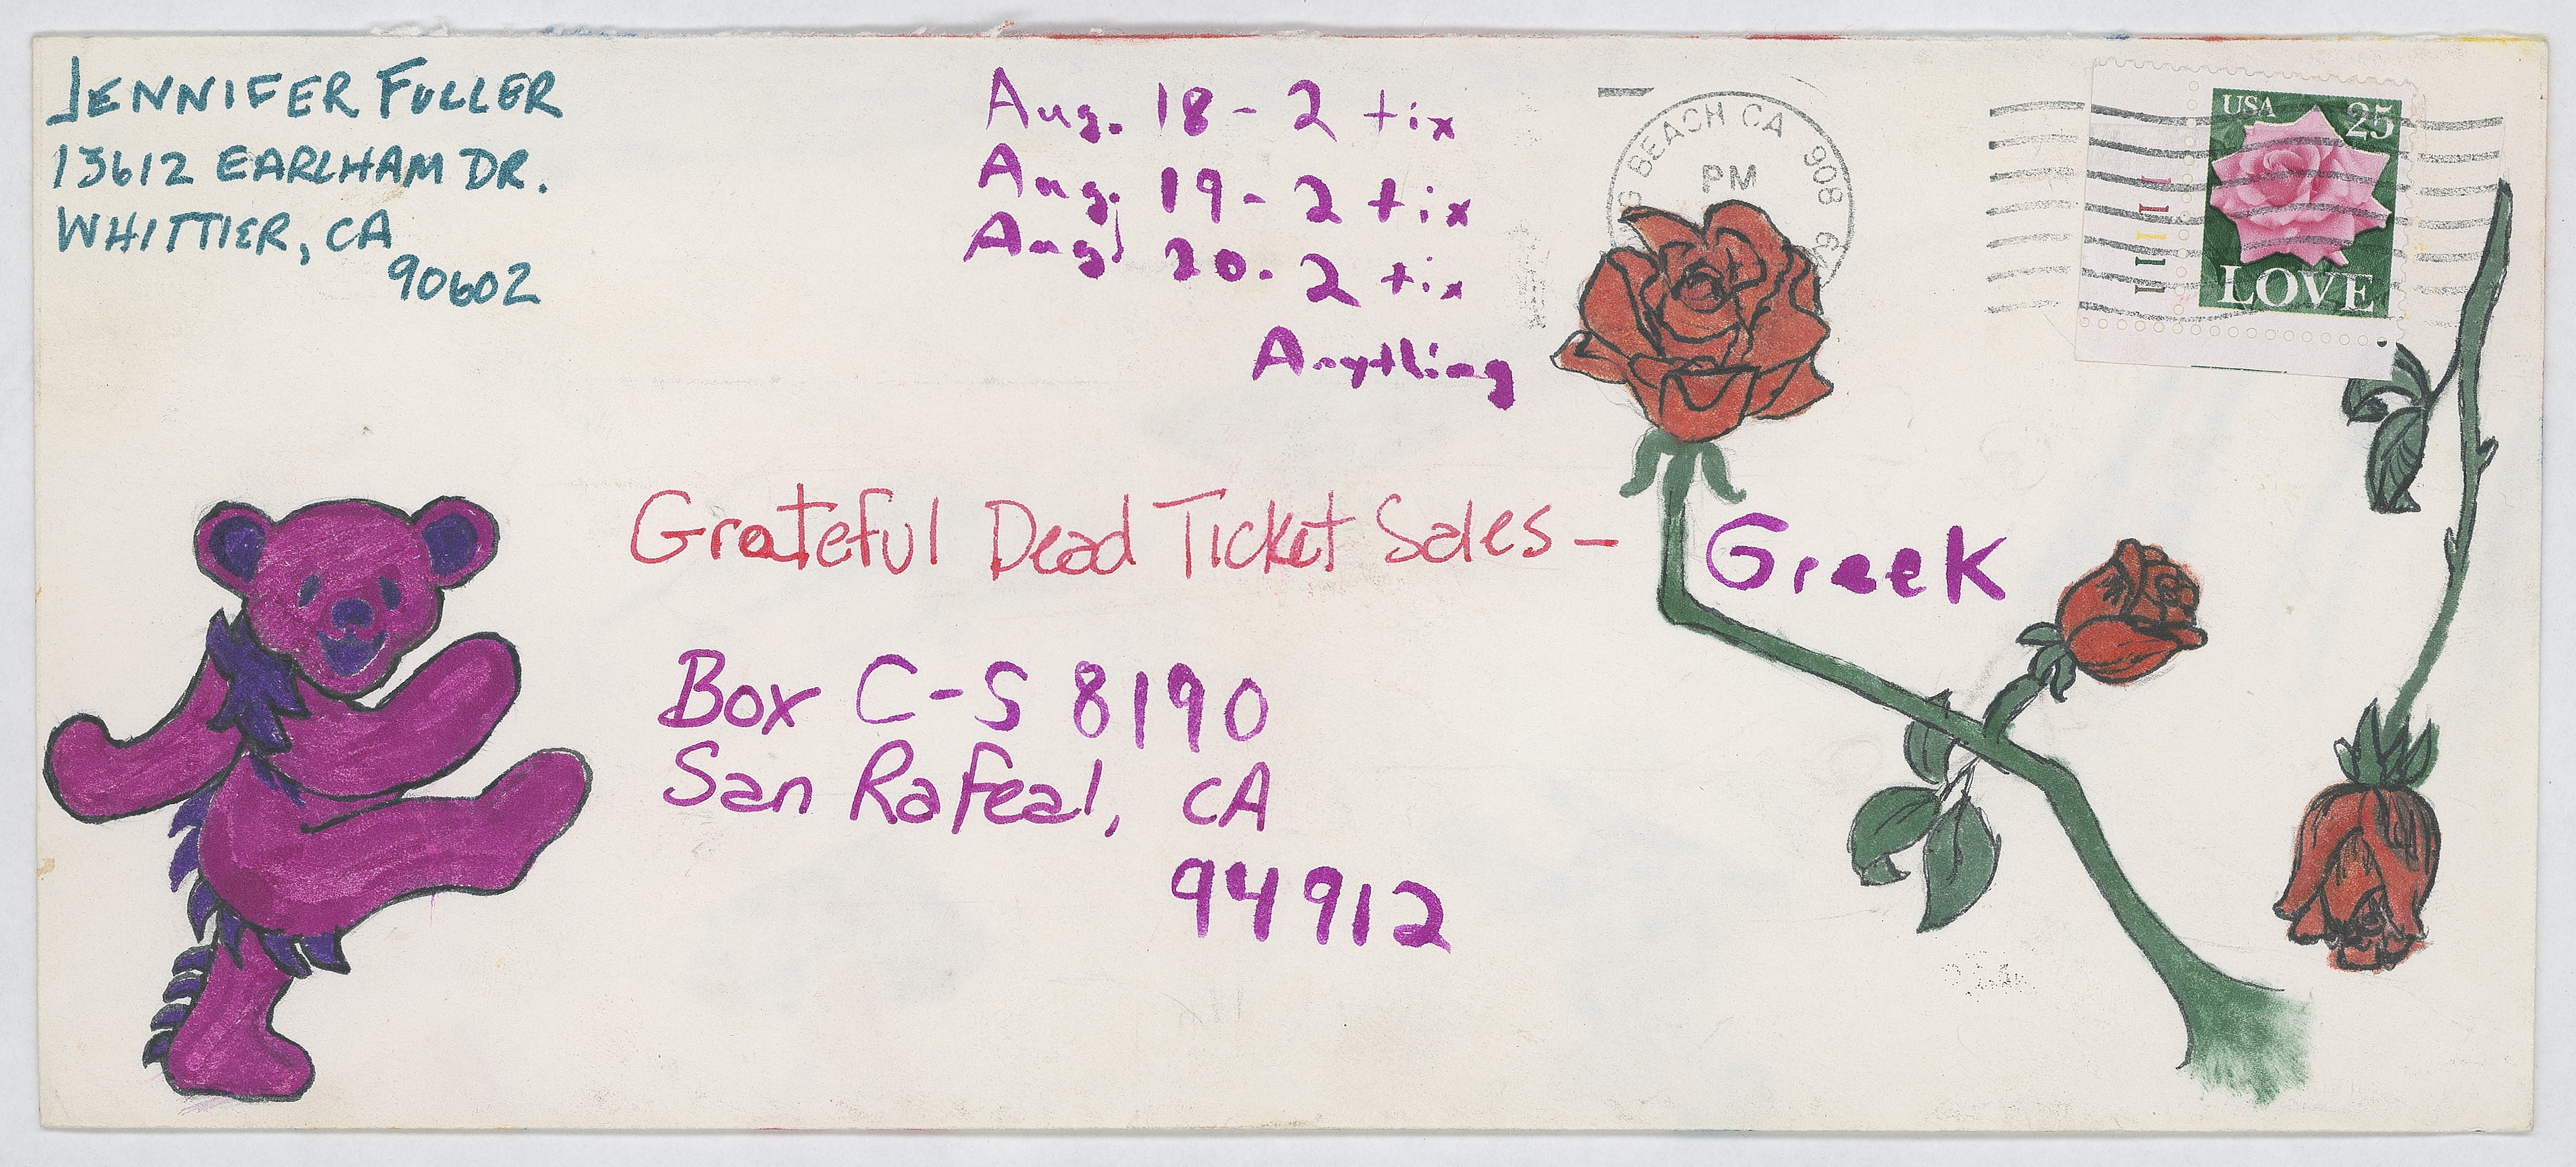 JENNIFER FULLER
13612 EARLHAM DR.
WHITTIER, CA
90602
Aug. 18 - 2 tix
Aug. 19 - 2 tix
Aug. 20 - 2 tix
Anything
BEACH CA 908
PM
USA 25
LOVE
1 1 1 1 1
Grateful Dead Ticket Sales - Greek
Box C-S 8190
San Rafeal, CA
94912